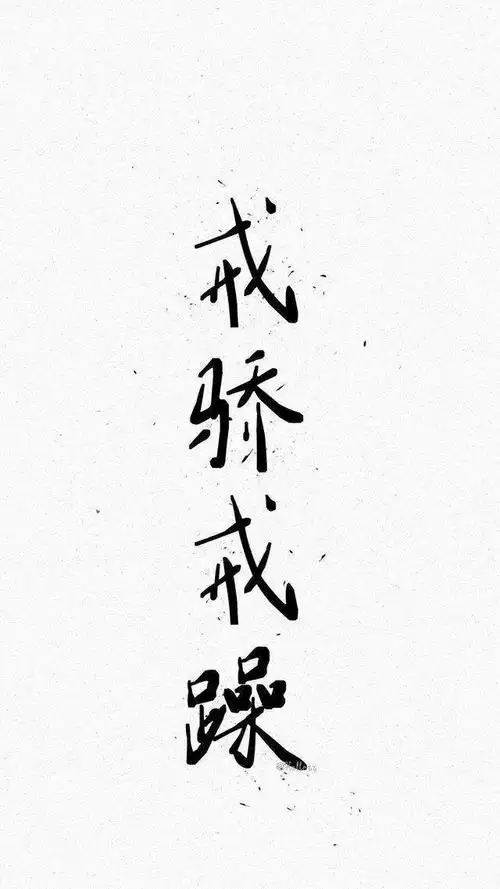 戒骄戒躁